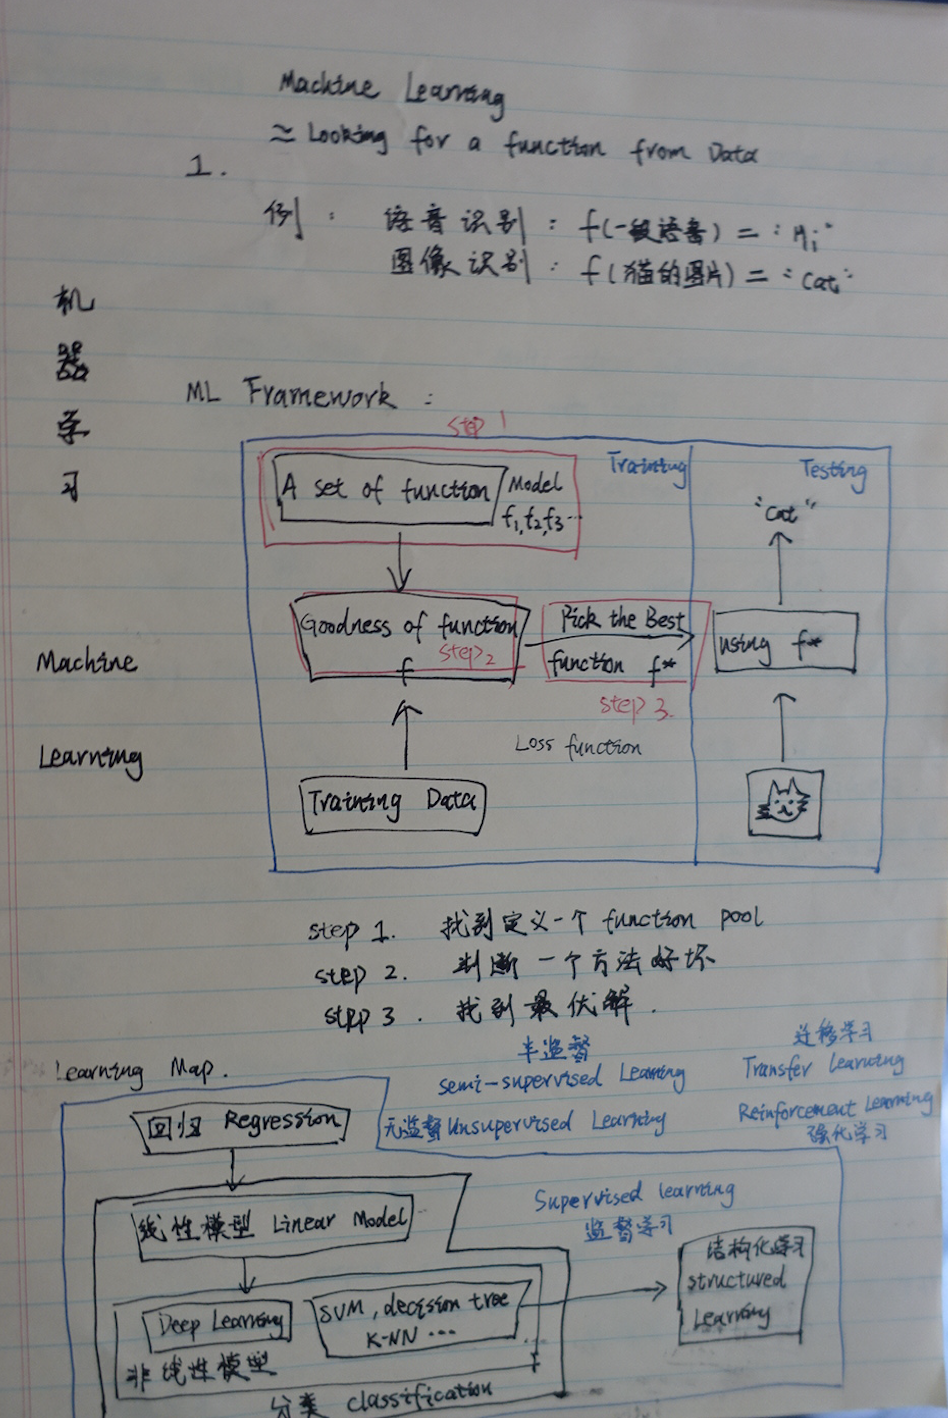 Machine Learning
≈ Looking for a function from Data
1.
例: 语音识别: f(一段语音) = "Hi"
图像识别: f(猫的图片) = "cat"
机
器
学
习
Machine
Learning
ML Framework:
step 1
Training
Testing
A set of function
Model
f1, f2, f3 …
"cat"
Goodness of function
f
step 2
Pick the Best
function f*
step 3
using f*
Loss function
Training Data
step 1. 找到定义一个 function pool
step 2. 判断一个方法好坏
step 3. 找到最优解.
Learning Map.
半监督
semi-supervised Learning
无监督 Unsupervised Learning
迁移学习
Transfer Learning
Reinforcement Learning
强化学习
回归 Regression
Supervised learning
监督学习
线性模型 Linear Model
结构化学习
structured
Learning
Deep Learning
SVM, decision tree
K-NN …
非线性模型
分类 classification